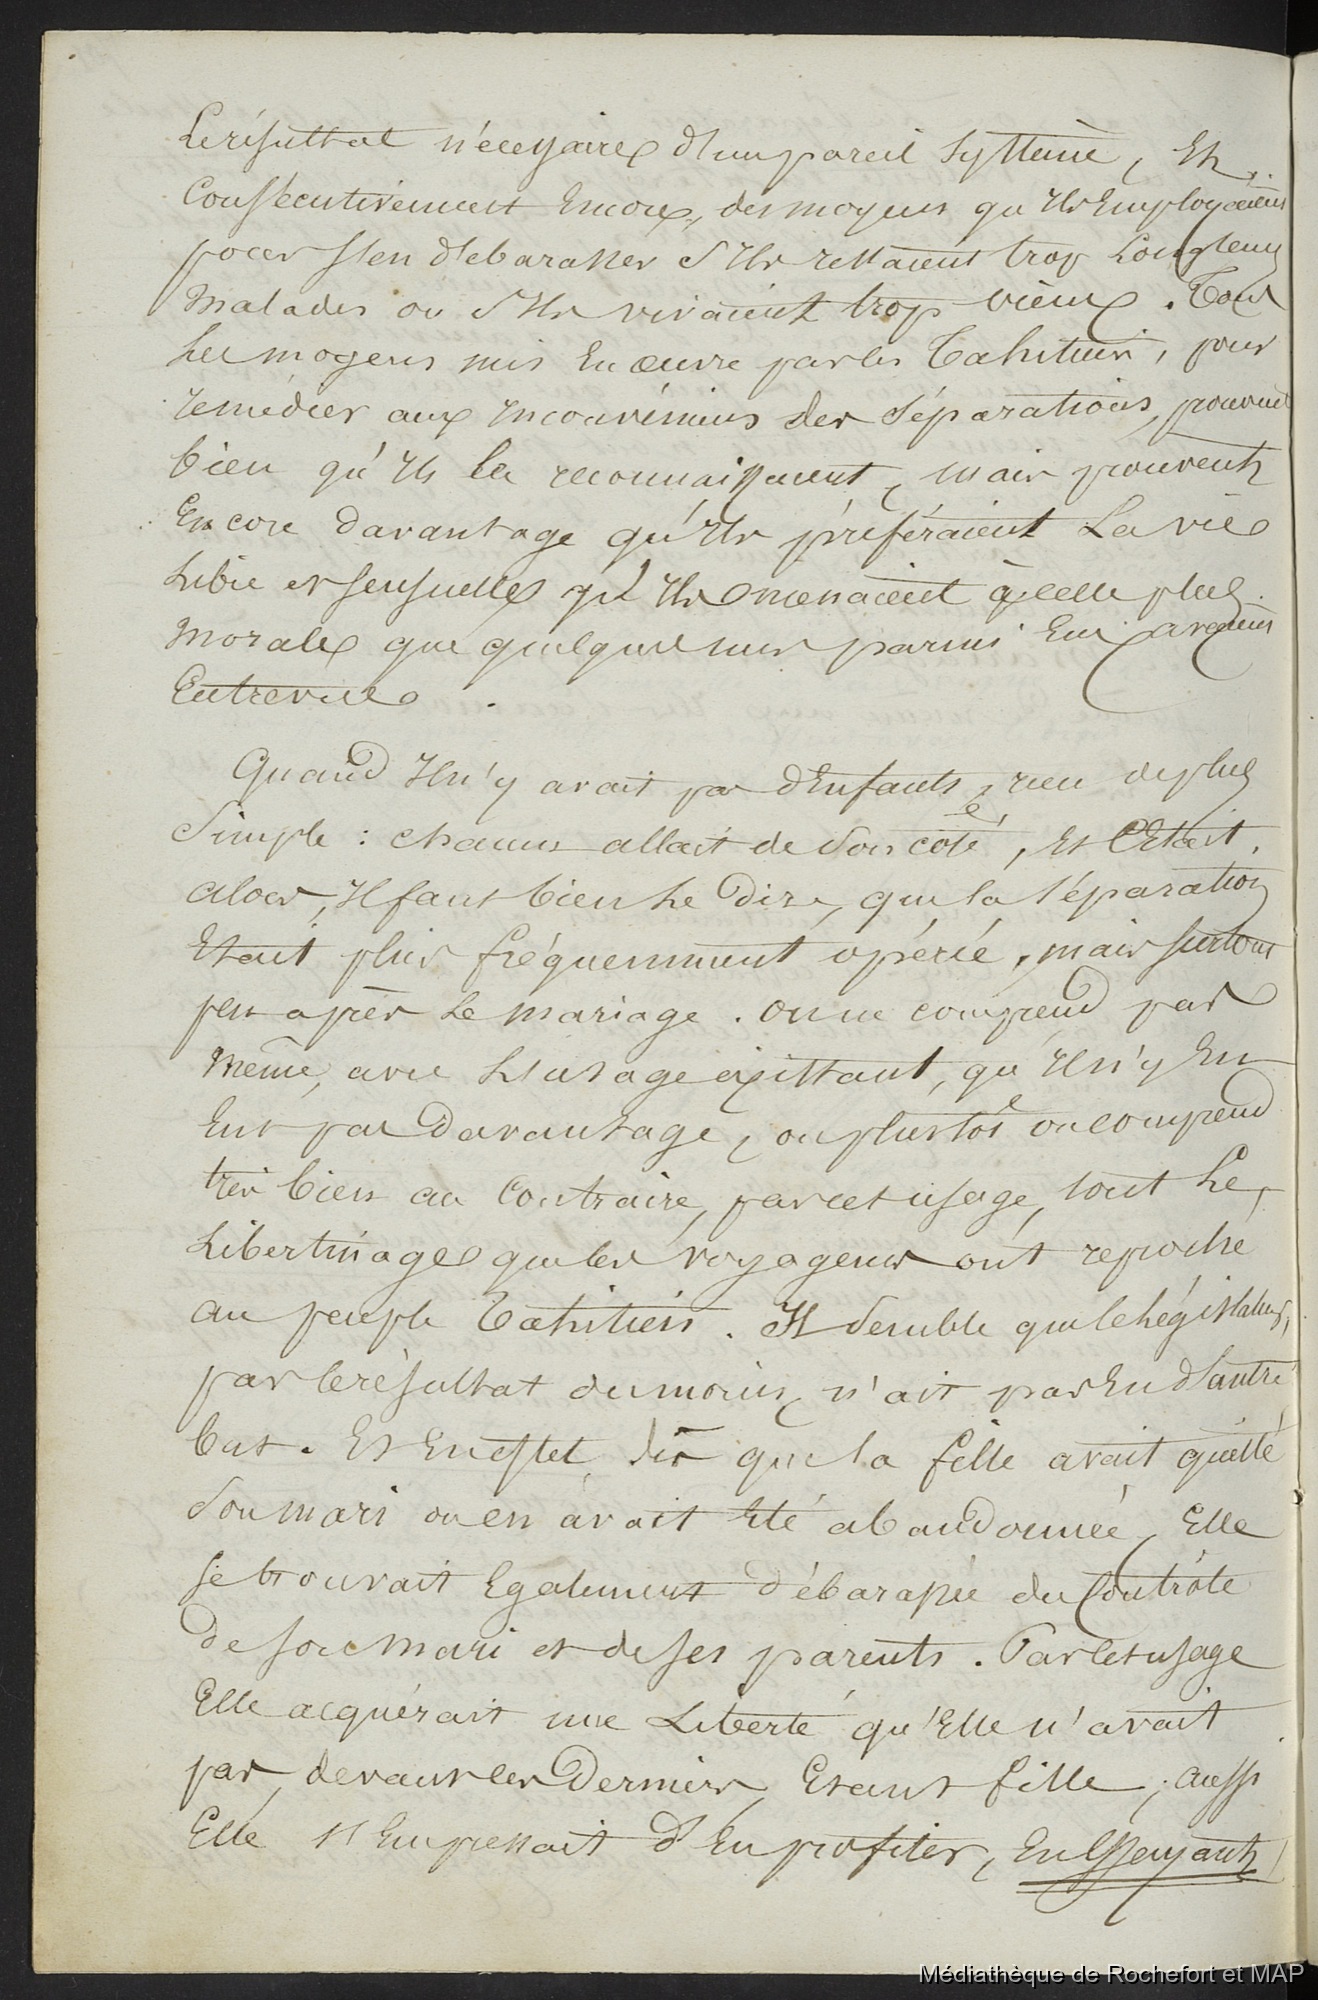 Le résultat nécessaire d'un pareil système, Et,
Consécutivement Encore, des moyens qu'Ils Employaient
pour s'en débarasser s'Ils restaient trop Longtems
Malades ou s'Ils vivaient trop vieux. Tous
Les moyens mis En œuvre par les Tahitiens, pour
remédier aux Inconvéniens des séparations, prouvent
bien qu'Ils les reconnaissaient, mais prouvent
Encore davantage qu'Ils préféraient La vie
Libre et sensuelle qu'Ils menaient à celle plus
Morale que quelques uns parmi Eux avaient
Entrevue.
Quand Il n'y avait pas d'Enfants, rien de plus
Simple : chacun allait de son coté, et C'Etait
alors, Il faut bien Le Dire, que la séparation
Etait plus fréquemment opérée, mais surtout
peu après Le mariage. On ne comprend pas
Même, avec L'usage existant, qu'Il n'y En
Eut pas Davantage, ou plustôt on comprend
très bien au Contraire, par cet usage, tout Le
Libertinage que les voyageurs ont reproché
au peuple Tahitien. Il semble que le Législateur,
par le résultat du moins, n'ait pas Eu d'autre
but. Et En effet, dès que la fille avait quitté
son mari ou en avait Eté abandonnée, Elle
se trouvait Egalement débarassée du Contrôle
de son Mari et de ses parents. Par cet usage
Elle acquérait une Liberté qu'Elle n'avait
pas, devant ces Derniers, Etant fille ; aussi
Elle s'Empressait d'En profiter, En Essayant
Médiathèque de Rochefort et MAP